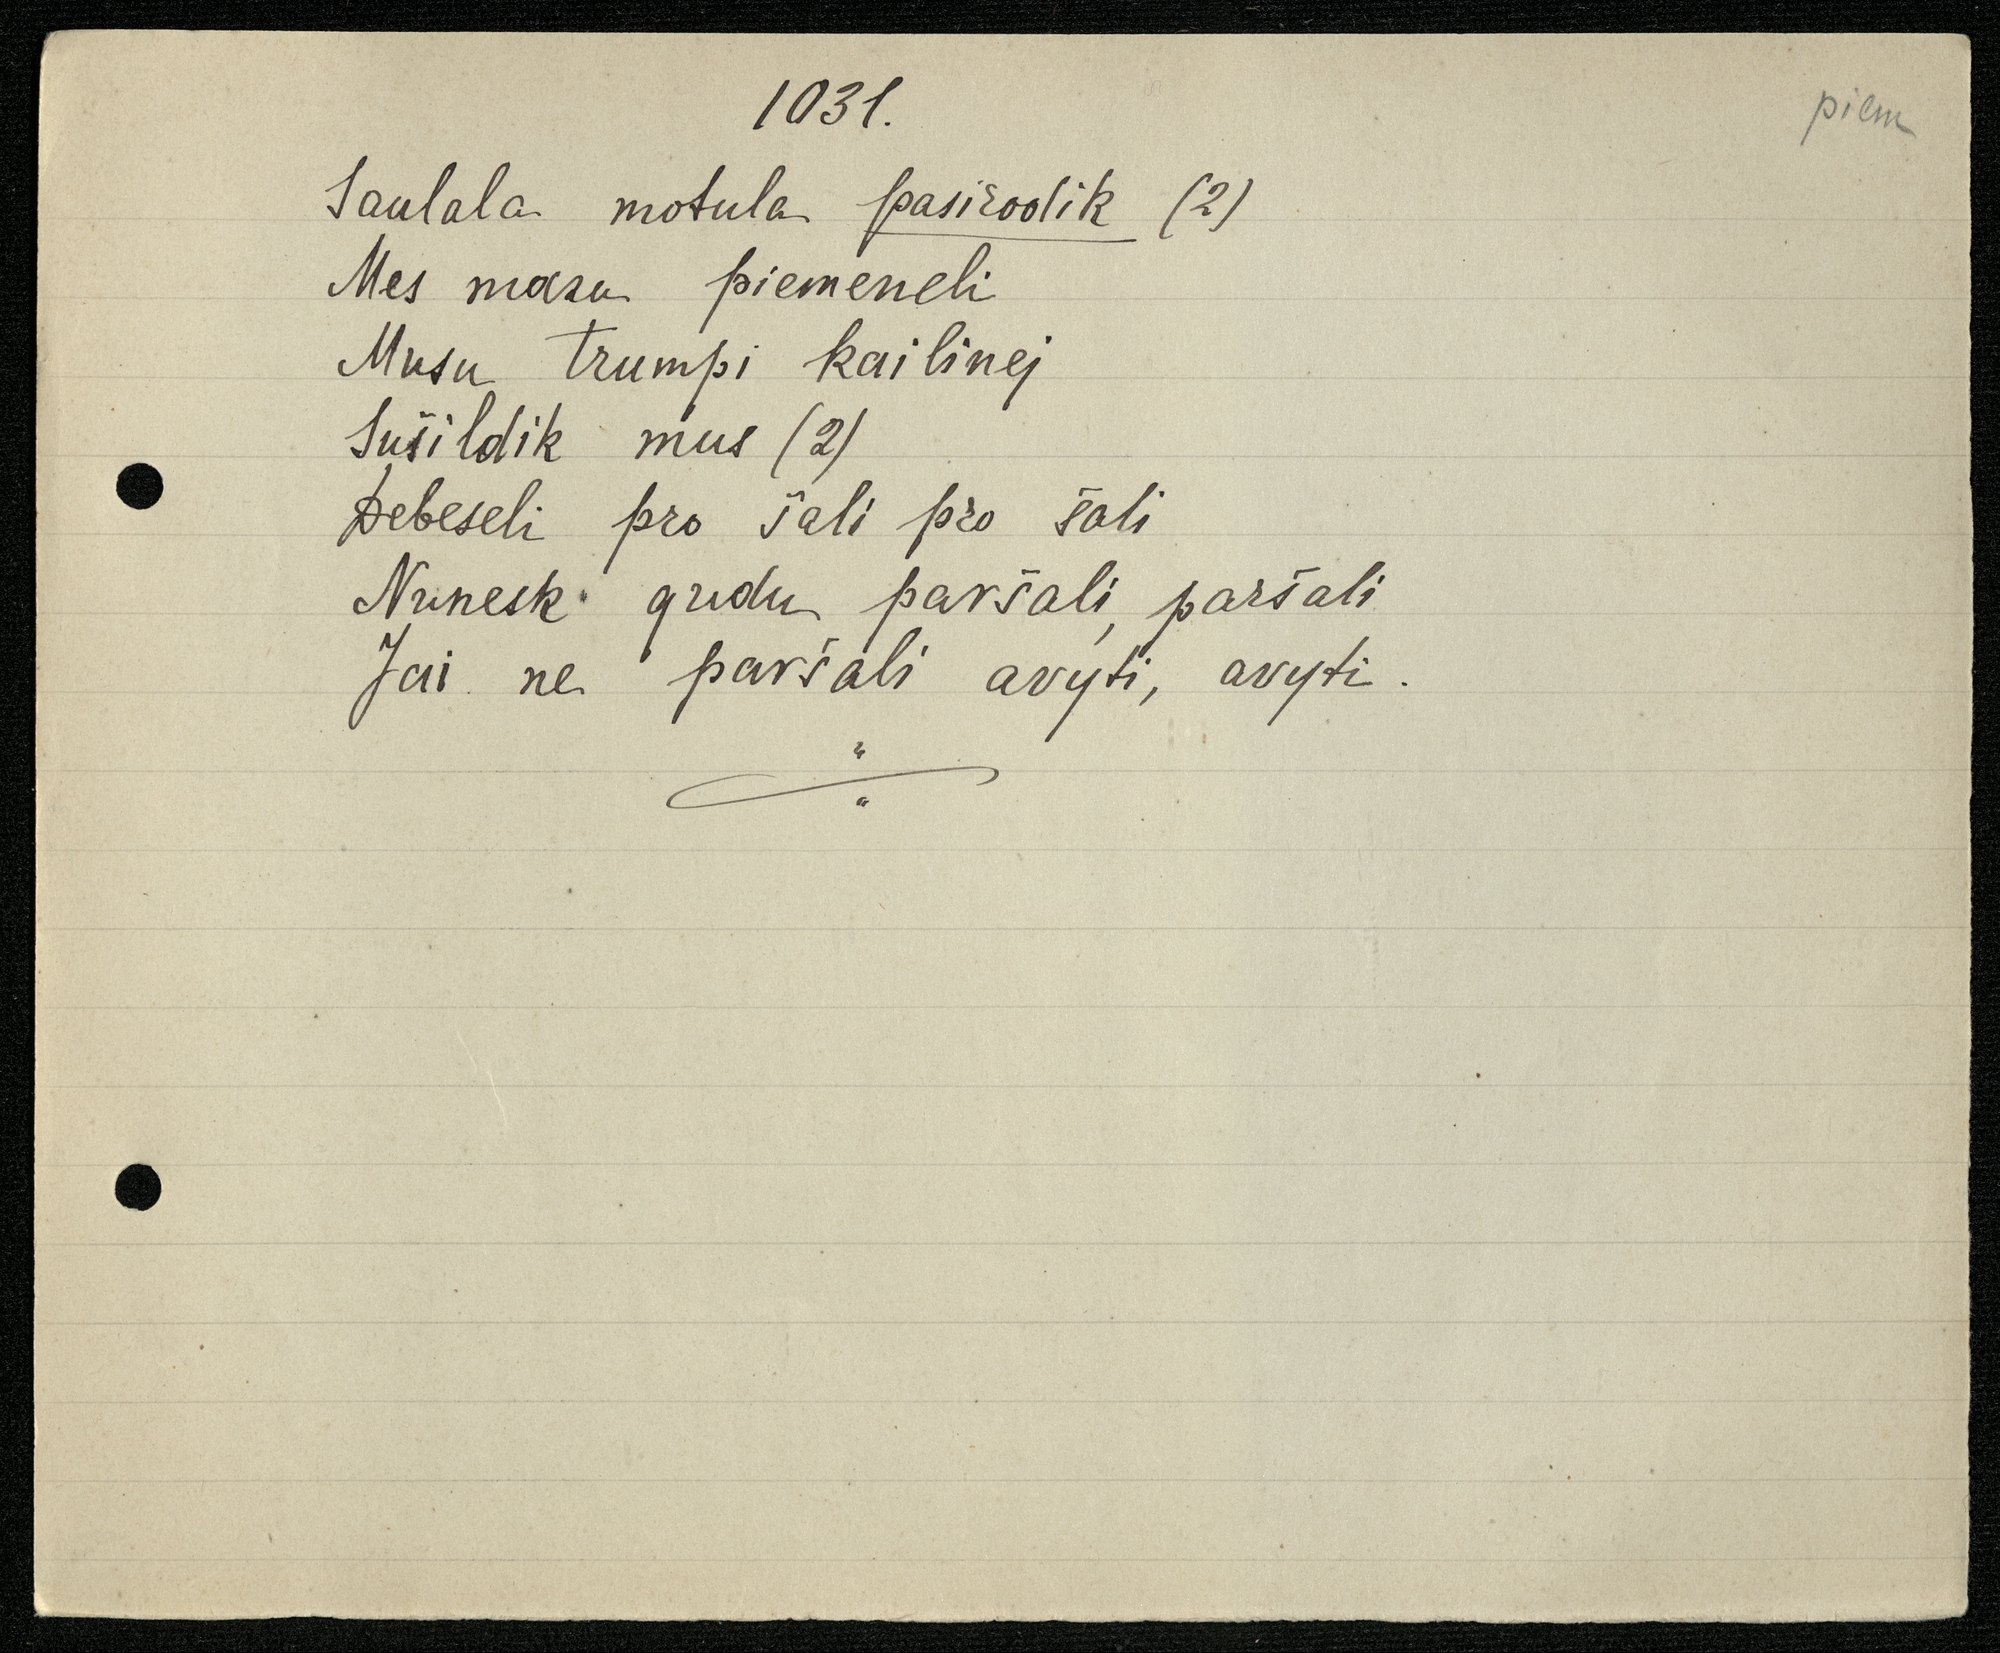 1031.
piem
Saulala motula pasirodik (2)
Mes mazu piemeneli
Musu trumpi kailinej
Sušildik mus (2)
Debeseli pro šali pro šali
Nunesk gudu paršali, paršali
Jai ne paršali avyti, avyti.